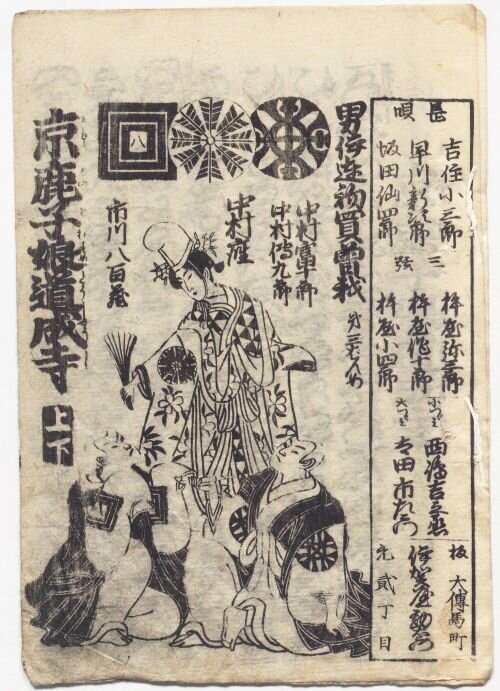 長唄
吉住小三郎
早川新次郎
坂田仙四郎
三弦
杵屋弥三郎
杵屋作十郎
杵屋小四郎
板元
大傳馬町
貳丁目
男伊達初買曽我
中村富十郎
中村傳九郎
中村座
市川八百蔵
八
京鹿子娘道成寺
上下